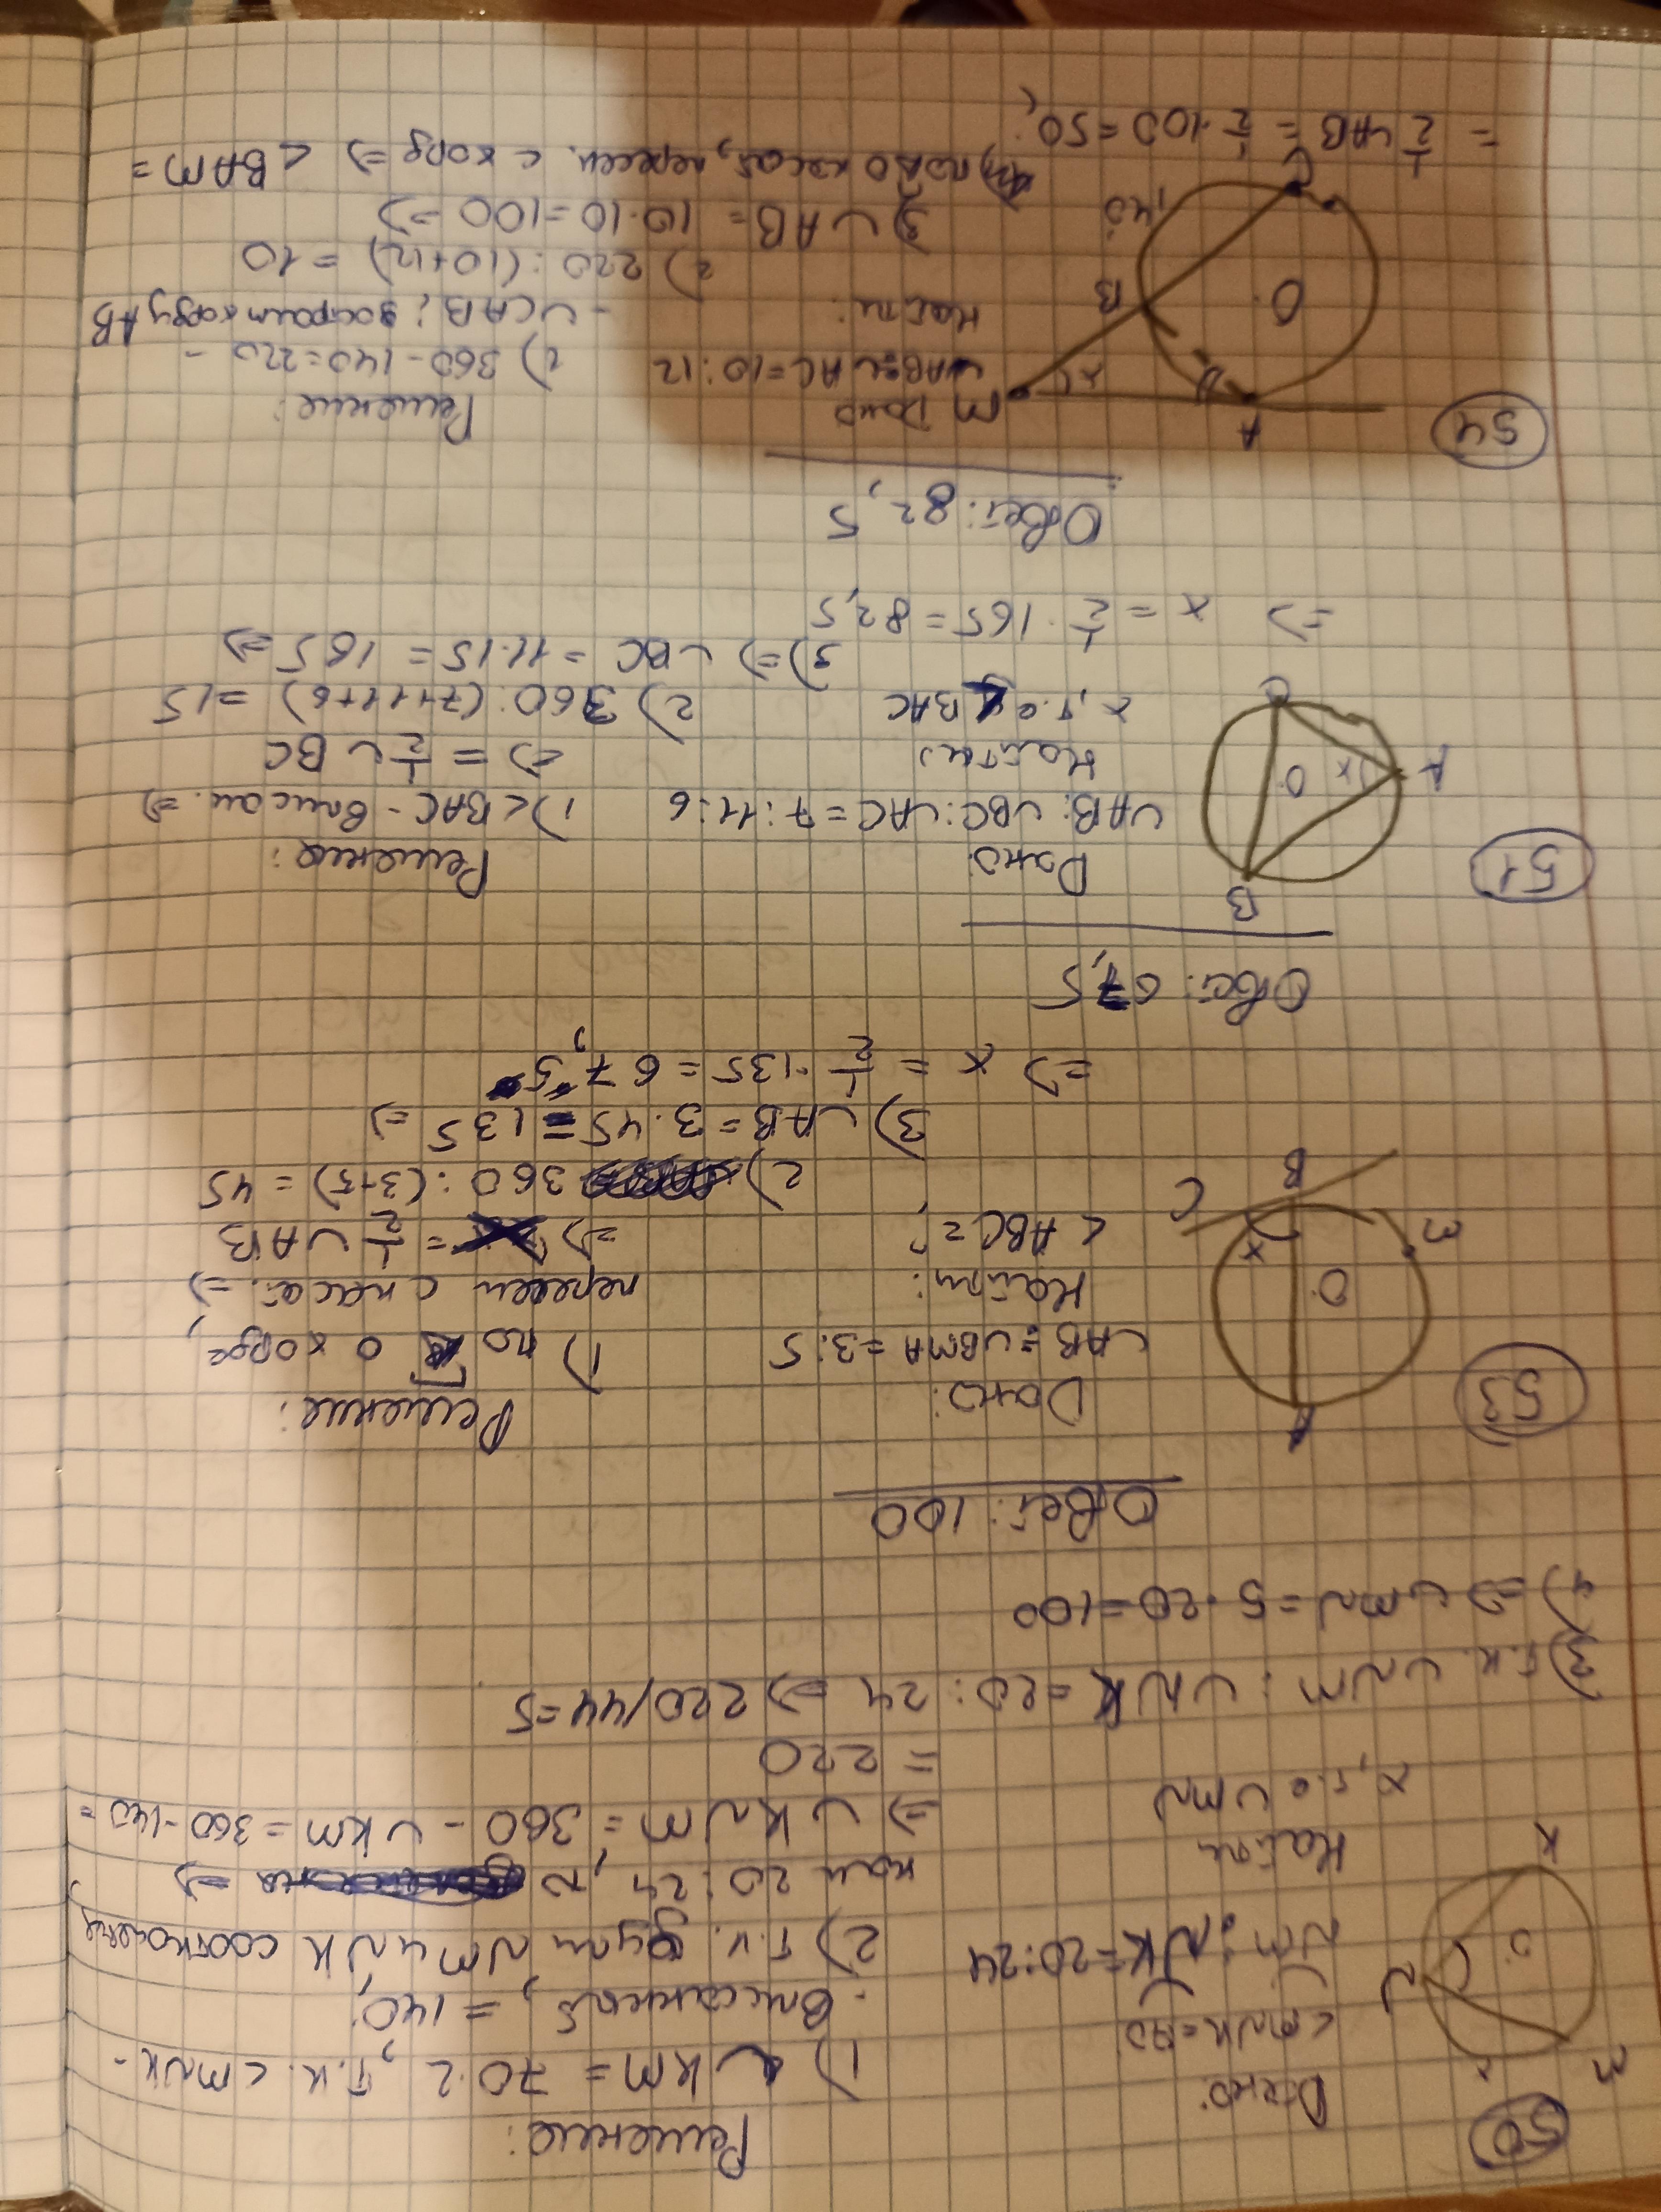 50
Дано:
∠MNK=70°
◡NM:◡NK=20:24
Найти
x, т.е ◡MN
Решение:
1) ◡KM = 70·2, т.к. ∠MNK -
- вписанный, = 140°
2) т.к. дуги NM и NK соотноше
как 20:24, =>
=> ◡KNM = 360 - ◡KM = 360-140=
= 220
3) т.к. ◡NM : ◡NK = 20:24 => 220/44=5
4) => ◡MN = 5·20=100
Ответ: 100
M
N
K
O
x
53
Дано:
◡AB:◡BMA=3:5
Найти:
∠ABC=?
Решение:
1) по о хорде,
пересеч с касат. =>
=> = 1/2 ◡AB
2) 360:(3+5) = 45
3) ◡AB=3·45=135 =>
=> x = 1/2·135 = 67,5
Ответ: 67,5
A
O
M
x
C
B
51
Дано:
◡AB:◡BC:◡AC=7:11:6
Найти
x, т.е ∠BAC
Решение:
1) ∠BAC - вписан. =>
=> = 1/2 ◡BC
2) 360:(7+11+6) = 15
3) => ◡BC = 11·15 = 165 =>
=> x = 1/2·165 = 82,5
Ответ: 82,5
B
A
x
O
C
54
Дано
◡AB:◡AC=10:12
Найти:
Решение:
1) 360-140=220 -
- ◡CAB; достроим хорду AB
2) 220:(10+12) = 10
3) ◡AB= 10·10=100 =>
4) по о касат, пересеч. с хорд => ∠BAM =
= 1/2 ◡AB = 1/2·100=50°
A
M
x
B
O
140°
C